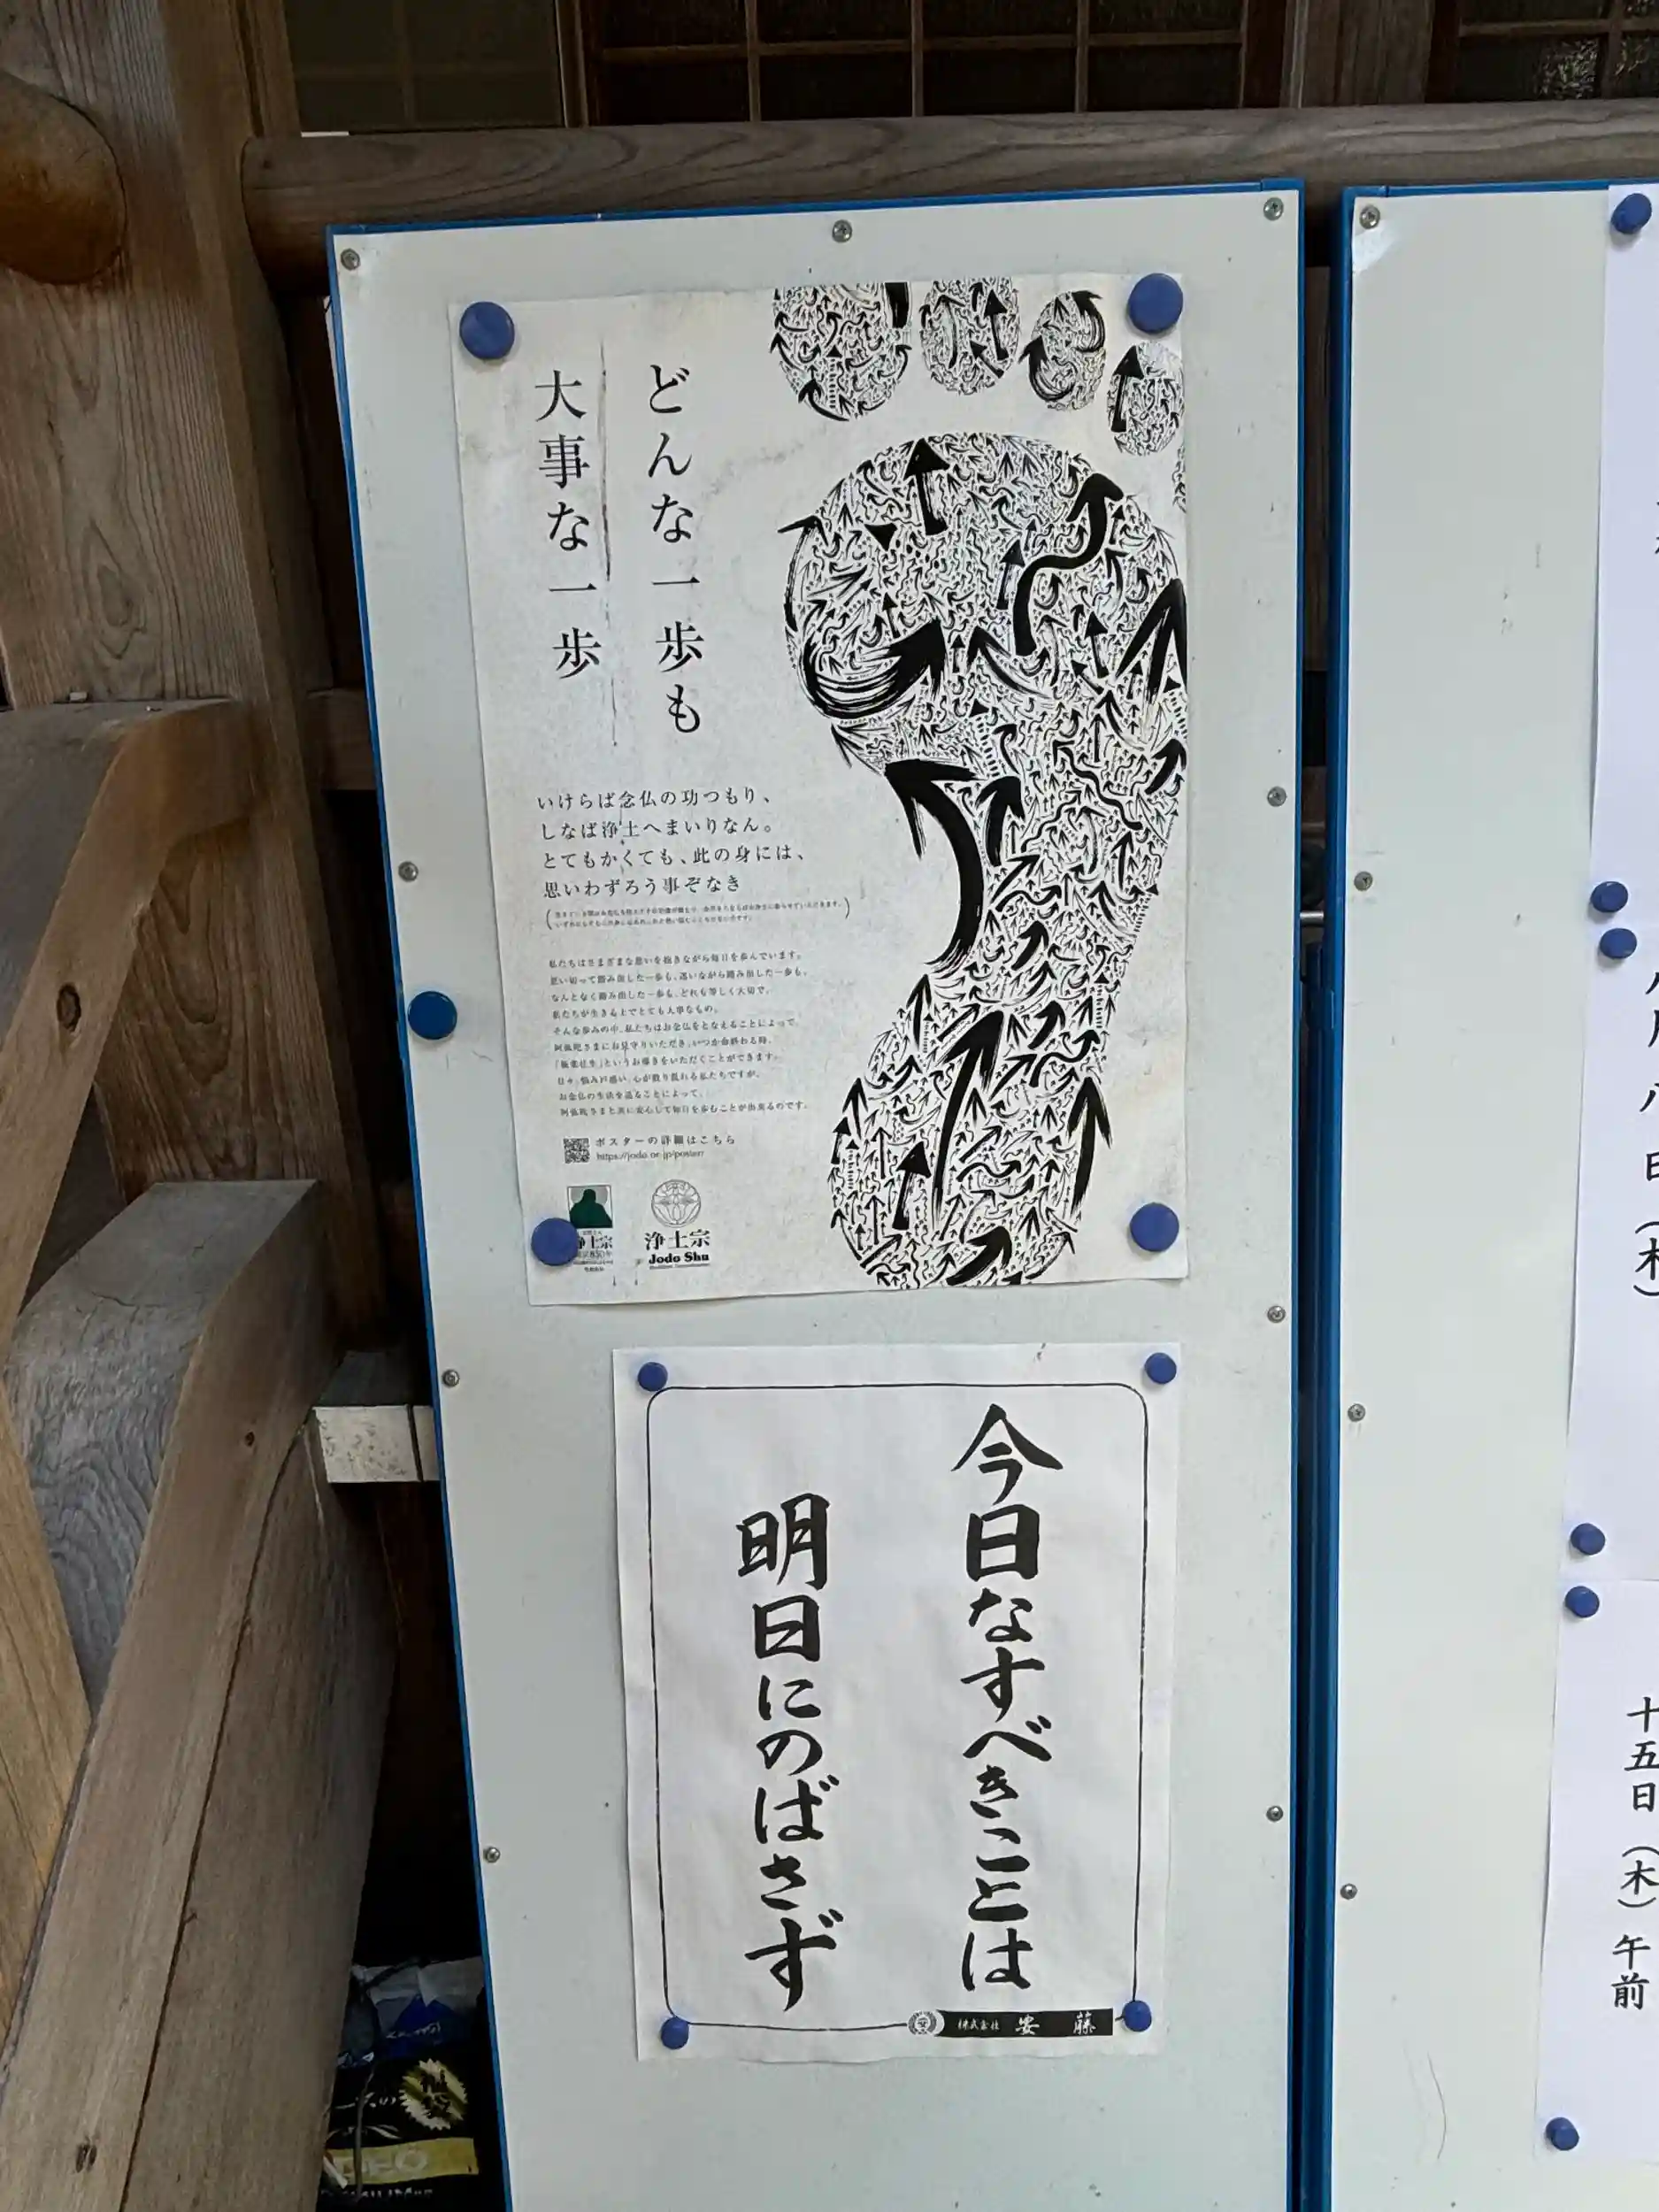 どんな一歩も
大事な一歩
いけらば念仏の功つもり、
しなば浄土へまいりなん。
とてもかくても、此の身には、
思いわずろう事ぞなき
私たちはさまざまな思いを抱きながら毎日を歩んでいます。
思い切って踏み出した一歩も、迷いながら踏み出した一歩も、
なんとなく踏み出した一歩も、どれも等しく大切で、
私たちが生きる上でとても大事なもの。
そんな歩みの中、私たちはお念仏をとなえることによって、
阿弥陀さまにお見守りいただき、いつか命終わる時、
「極楽往生」というお導きをいただくことができます。
日々、悩み戸惑い、心が散り乱れる私たちですが、
お念仏の生活を送ることによって、
阿弥陀さまと共に安心して毎日を歩むことが出来るのです。
ポスターの詳細はこちら
https://jodo.or.jp/poster/
浄土宗
浄土宗
Jodo Shu
今日なすべきことは
明日にのばさず
株式会社 安藤
八日(木)
十五日(木)午前